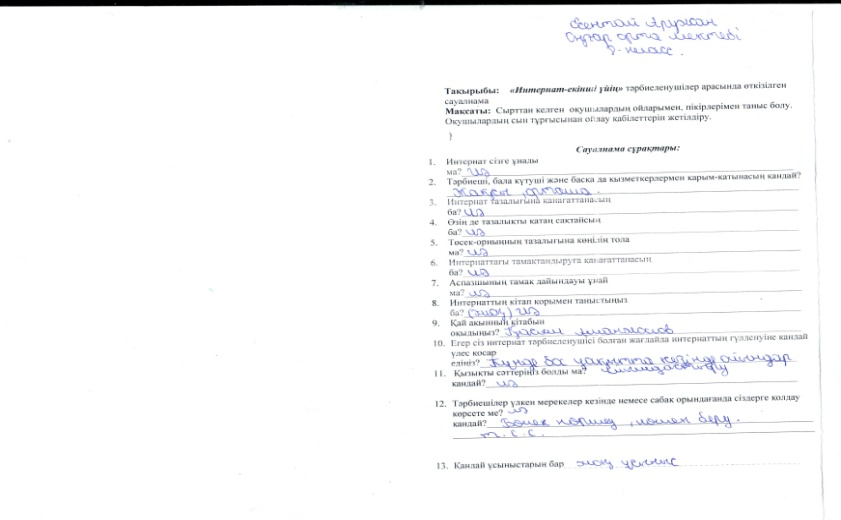 Сентай Аружан
Оңтар орта мектебі
9-класс.
Тақырыбы: «Интернат-екінші үйің» тәрбиеленушілер арасында өткізілген
сауалнама
Мақсаты: Сырттан келген оқушылардың ойларымен, пікірлерімен таныс болу.
Оқушылардың сын тұрғысынан ойлау қабілеттерін жетілдіру.
Сауалнама сұрақтары:
1. Интернат сізге ұнады
ма? иә
2. Тәрбиеші, бала күтуші және басқа да қызметкерлермен қарым-қатынасың қандай?
Жақсы, орташа.
3. Интернат тазалығына қанағаттанасың
ба? иә
4. Өзің де тазалықты қатаң сақтайсың
ба? иә
5. Төсек-орныңның тазалығына көңілің тола
ма? иә
6. Интернаттағы тамақтандыруға қанағаттанасың
ба? иә
7. Аспазшының тамақ дайындауы ұнай
ма? иә
8. Интернаттың кітап қорымен таныстыңыз
ба? (жоқ) иә
9. Қай ақынның кітабын
оқыдыңыз?
10. Егер сіз интернат тәрбиеленушісі болған жағдайда интернаттың гүлденуіне қандай
үлес қосар
едіңіз? бос уақытта кезінде ойындар
ұйымдастыру
11. Қызықты сәттеріңіз болды ма?
қандай? иә
12. Тәрбиешілер үлкен мерекелер кезінде немесе сабақ орындағанда сіздерге қолдау
көрсете ме? иә
қандай? Көмек көрсету, беру.
т.с.с.
13. Қандай ұсыныстарың бар жоқ ұсыныс